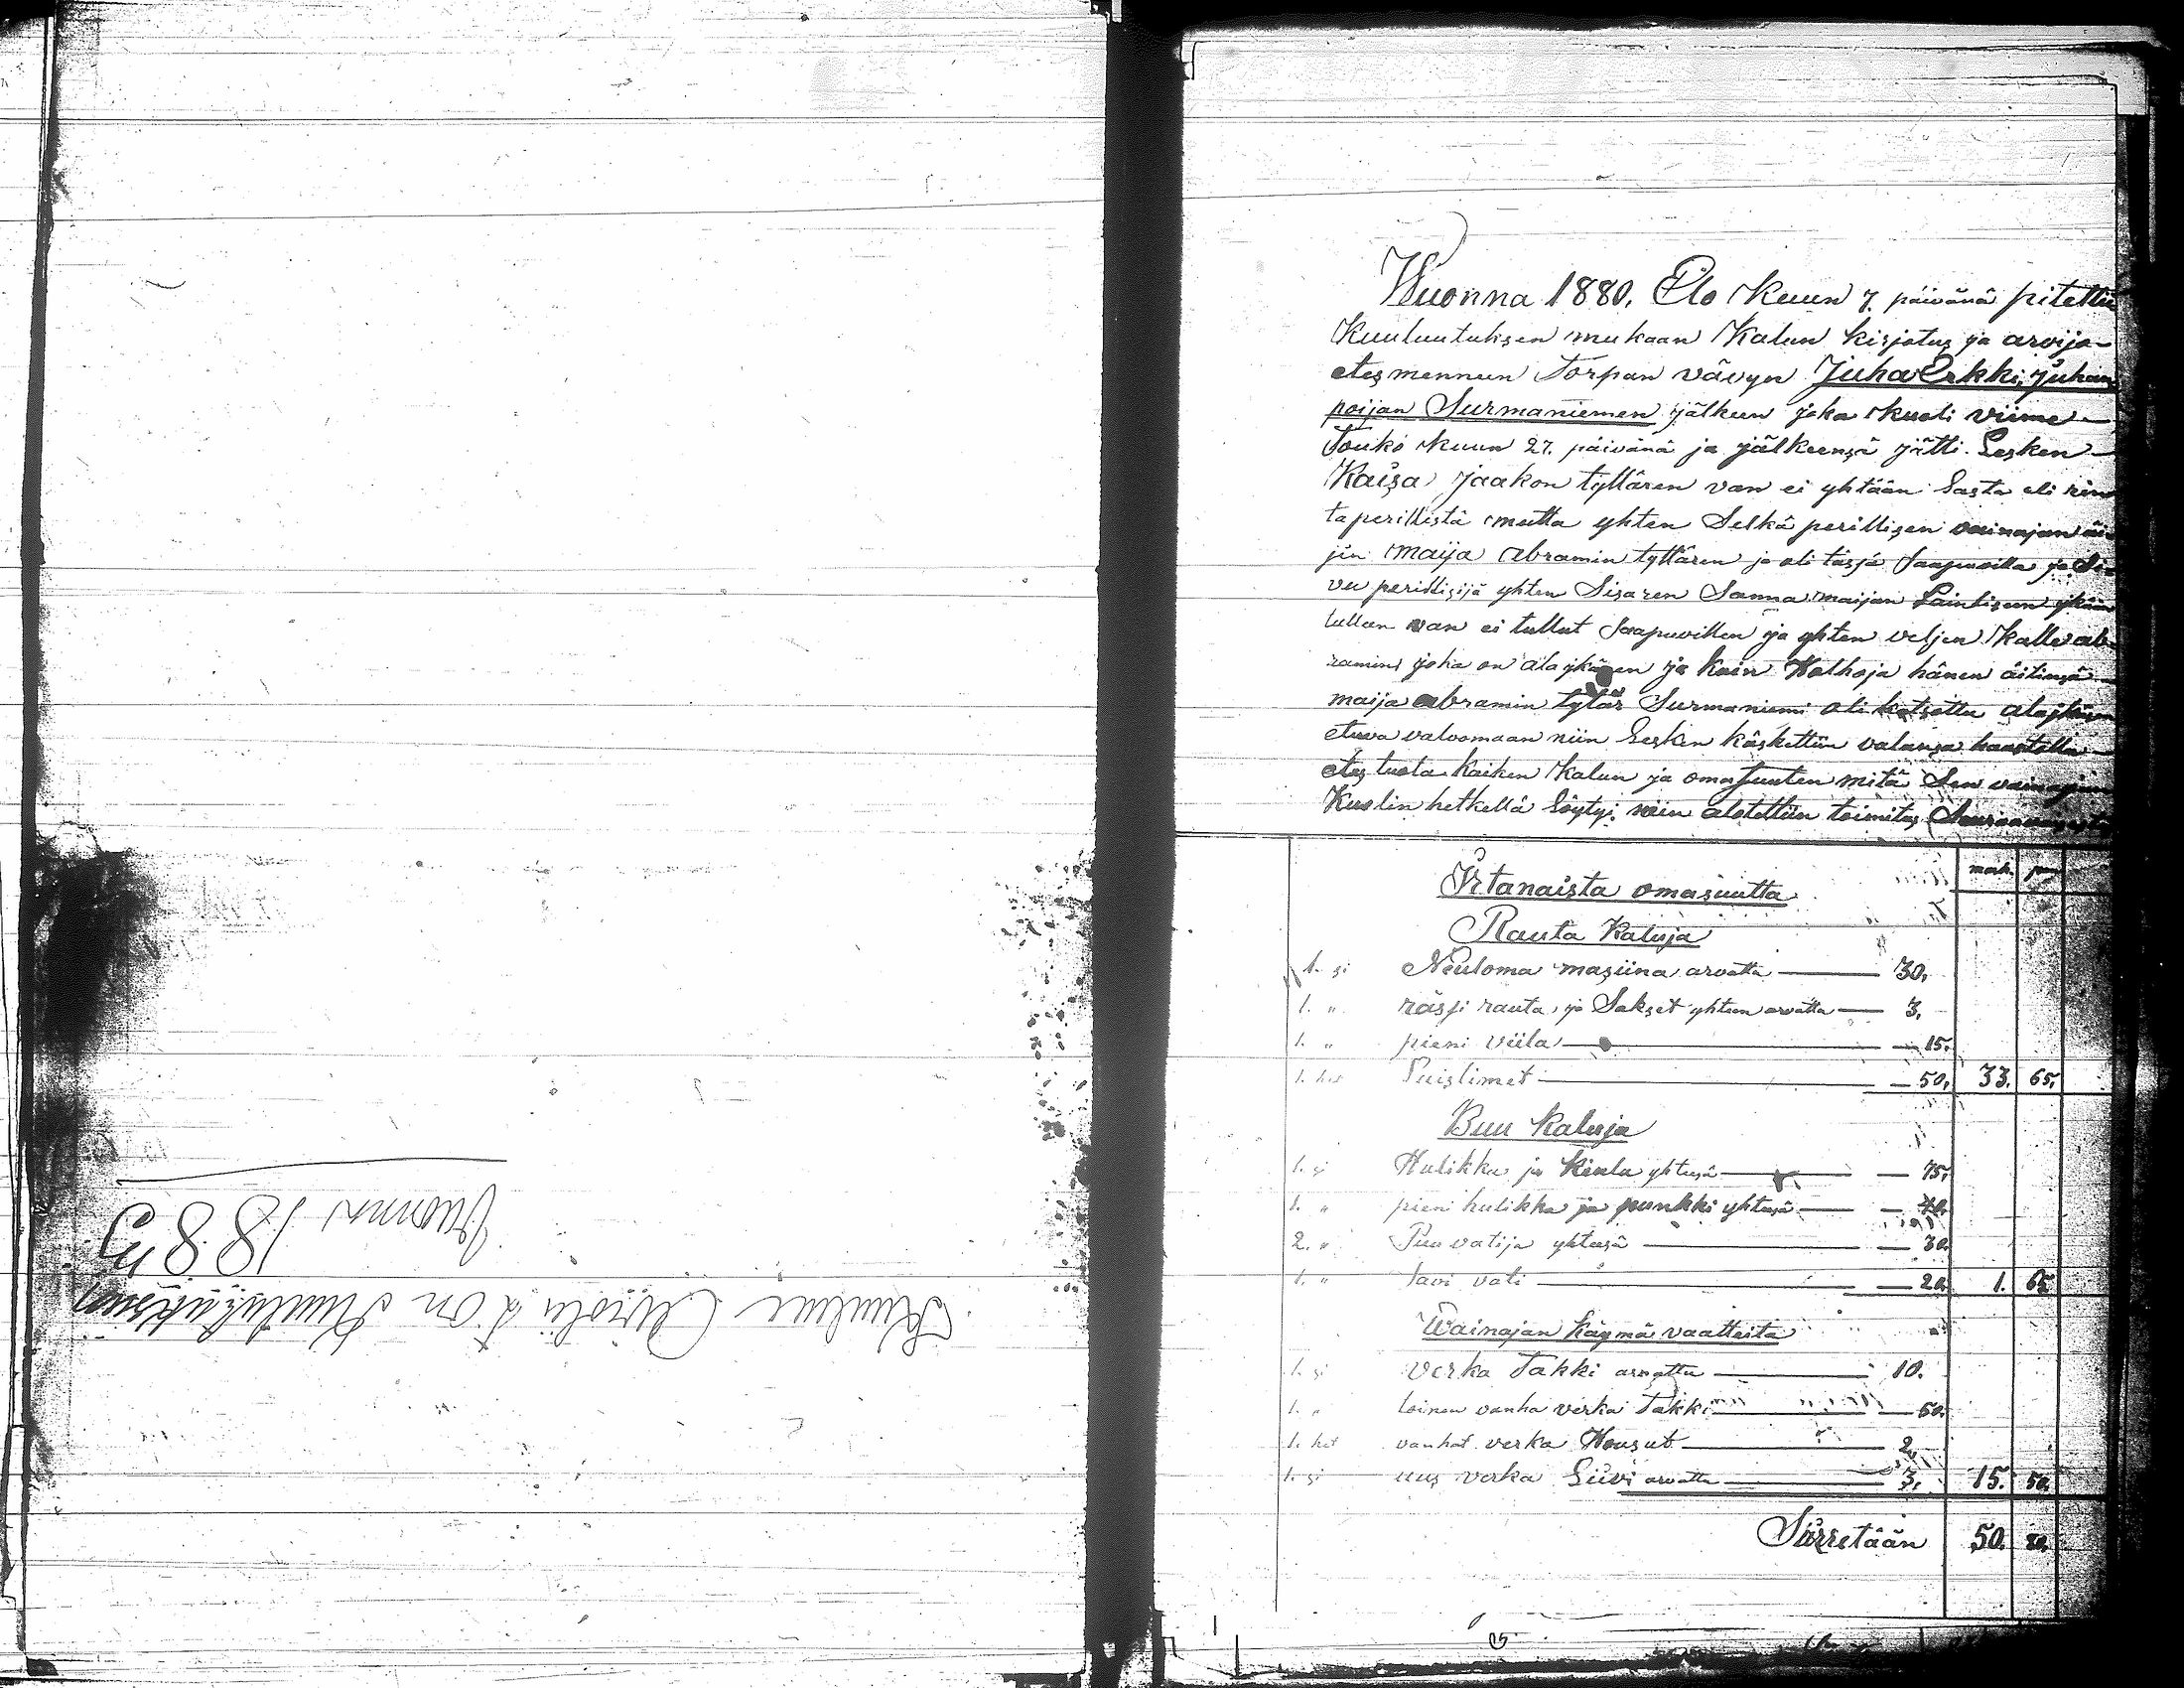 Vuonna 1883
Wuonna 1880. Elo Kuun 7. päivänä pitettiin
Kuuluutuksen mukaan Kalun kirjotus ja arvijo
etesmennun Torpan vävyn Juha Erkki, Juhan
poijan Surmaniemen jälkeen joka kuoli viime
Touko kuun 27. päivänä ja jälkeensä jätti Lesken
Kaisa Jaakon tyttären van ei yhtään Lasta eli rin
taperillistä mutta yhten Selkä perillisen vainajan äi
jin maija abramin tyttären ja oli täsjä Saapuvilla ja Si
vu perillisijä yhten Sisaren Sanna maijan
tullen van ei tullut Saapuvillen ja yhten veljen Kalle ab
ramin joka on alaykäsen ja kuin Holhoja hänen äitinsä
maija abramin tytär Surmaniemi oli katsottu alaykäsen
etuva valvomaan niin Lesken käskettiin valansa haastolla
etes tuota kaiken Kalun ja omasuuten mitä Sen vainajan
Kuolin hetkellä Löytyi, niin alotettiin toimitus
mark. pen
Irtanaista omasuutta
Rauta Kaluja
1. si Neuloma masiina arvattu 30.
1. " rässi rauta ja Sakset yhteen arvattu 3.
1. " pieni viila 15.
1. het Puislimet 50. 33. 65.
Buu Kaluja
1. si Hulikka ja Kiulu yhtesä 75.
1. " pieni hulikka ja punkki yhtesä 40.
2. " Puu vatija yhtesä 30.
1. " Savi vati 20. 1. 65
Wainajan käymä vaatteita
1. si Verka Takki arvattu 10.
1. " toinen vanha verka Takki 50.
1. het vanhat verka Housut 2.
1. si uus verka Liivi arvattu 3. 15. 50.
Siirretään 50. 80.